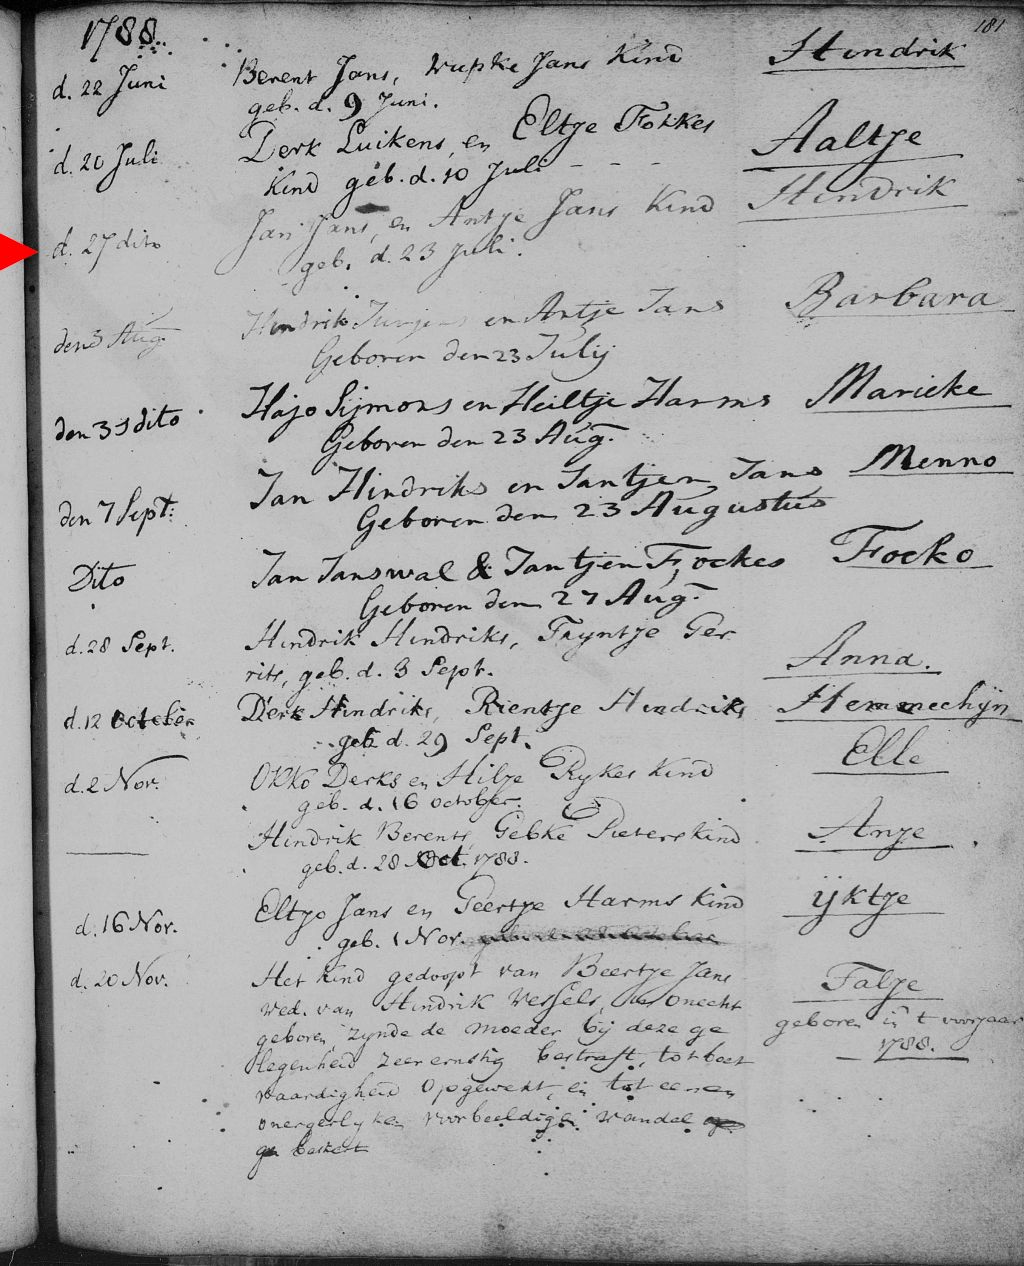 181
1788
d. 22 Juni Berent Jans, Wupke Jans Kind Hindrik
geb. d. 9 Juni.
d. 20 Juli Derk Luikens, en Eltje Fokkes Aaltje
Kind geb. d. 10 Juli - - -
d. 27 dito Jan Jans, en Antje Jans Kind Hindrik
geb. d. 23 Juli.
den 3 Aug. Hindrik Jurjens en Antje Jans Barbara
Geboren den 23 July
den 31 dito Hajo Sijmons en Heiltje Harms Marieke
Geboren den 23 Aug.
den 7 Sept: Jan Hindriks en Jantjen Jans Menno
Geboren den 23 Augustus
Dito Jan Janswal & Jantjen Fockes Focko
Geboren den 27 Aug.
d. 28 Sept. Hindrik Hindriks, Tryntje Ger
rits, geb. d. 3 Sept. Anna.
d. 12 October Derk Hindriks, Rientje Hindriks Hemmechijn
geb d. 29 Sept.
d. 2 Nov. Okko Derks en Hilje Rykes Kind Elle
geb. d. 16 october.
Hindrik Berents, Gebke Pieters kind Anje
geb. d. 28 Oct. 1788.
d. 16 Nov. Eltjo Jans en Geertje Harms Kind ijktje
geb. 1 Nov.
d. 20 Nov. Het Kind gedoopt van Beertje Jans Falje
wed. van Hindrik Wessels, in onecht
geboren in 't voorjaar
geboren zynde de moeder bij deze ge
1788.
legenheid zeer ernstig bestraft, tot boet
vaardigheid opgewekt, en tot eenen
onergerlyken voorbeeldigen wandel